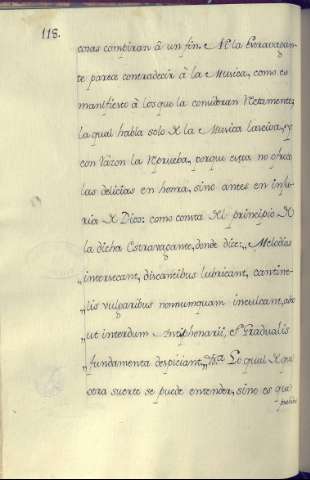 118.
cosas conspiran â un fin. Ni la Extravagan-
te parece contradecir â la Musica, como es
manifiesto â los que la consideran rectamente,
la qual habla solo de la Musica lasciva, y
con razon la reprueba, porque esta no ofrece
las delicias en honra, sino antes en inju-
ria de Dios: como consta del principio de
la dicha Extravagante, donde dice: „Melodias
„intersecant, discantibus lubricant, cantine-
„lis vulgaribus nonnumquam inculcant, adeo
„ut interdum Antiphonarii, et Gradualis
„fundamenta despiciant, &.ª Lo qual de que
otra suerte se puede entender, sino es que